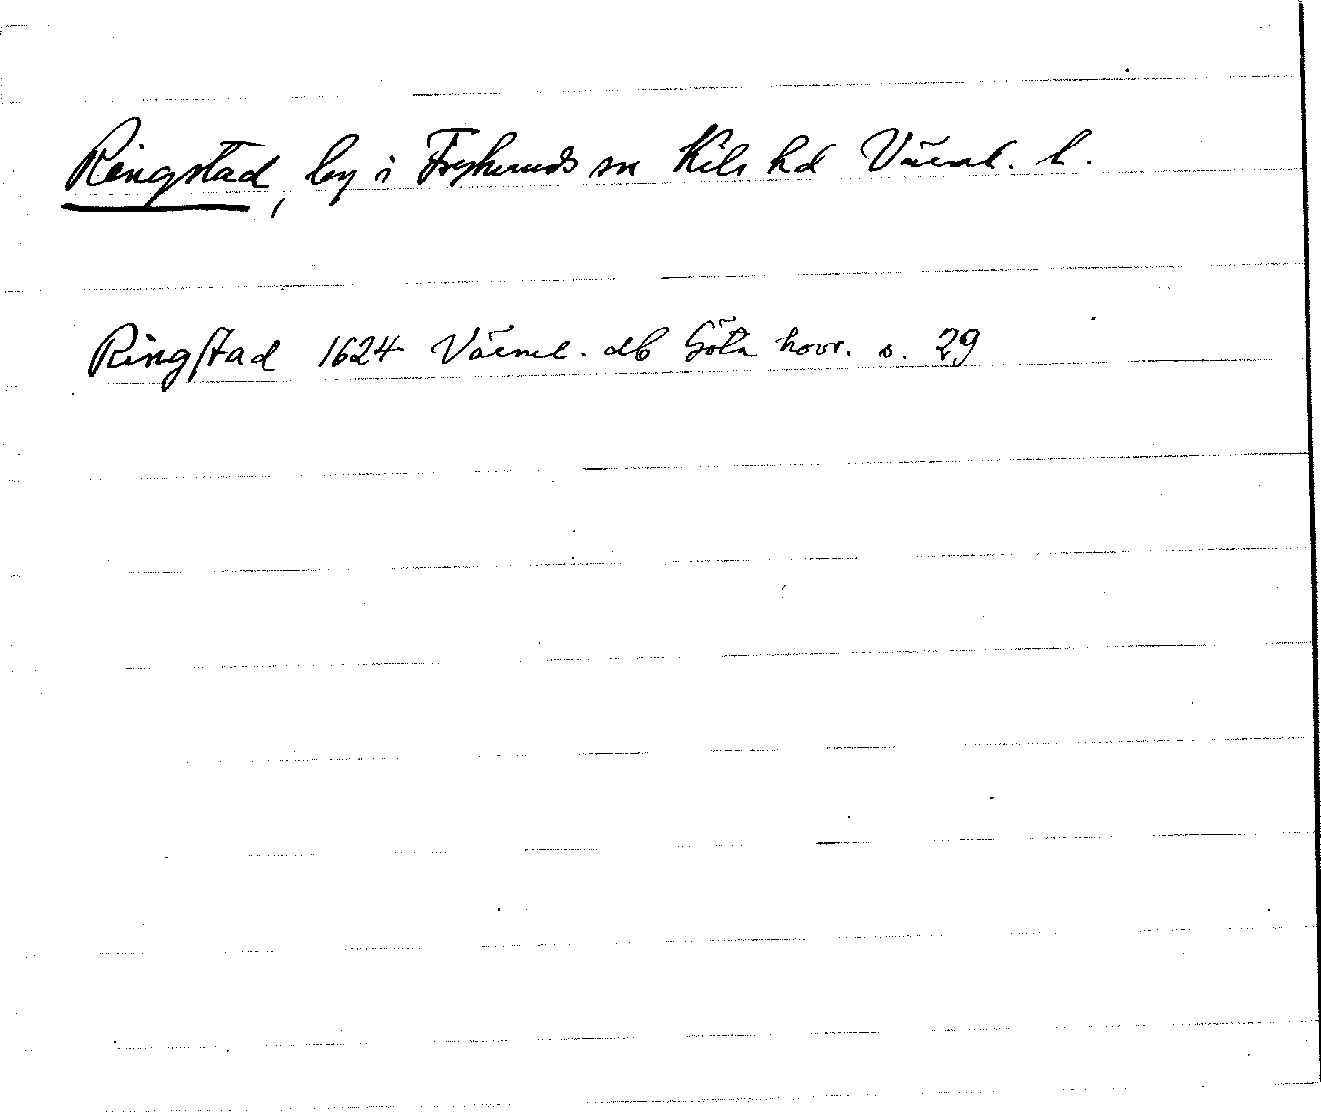 Ringstad, by i Frykeruds sn Kils hd Värml. l.
Ringstad 1624 Värml. db Göta hovr. s. 29